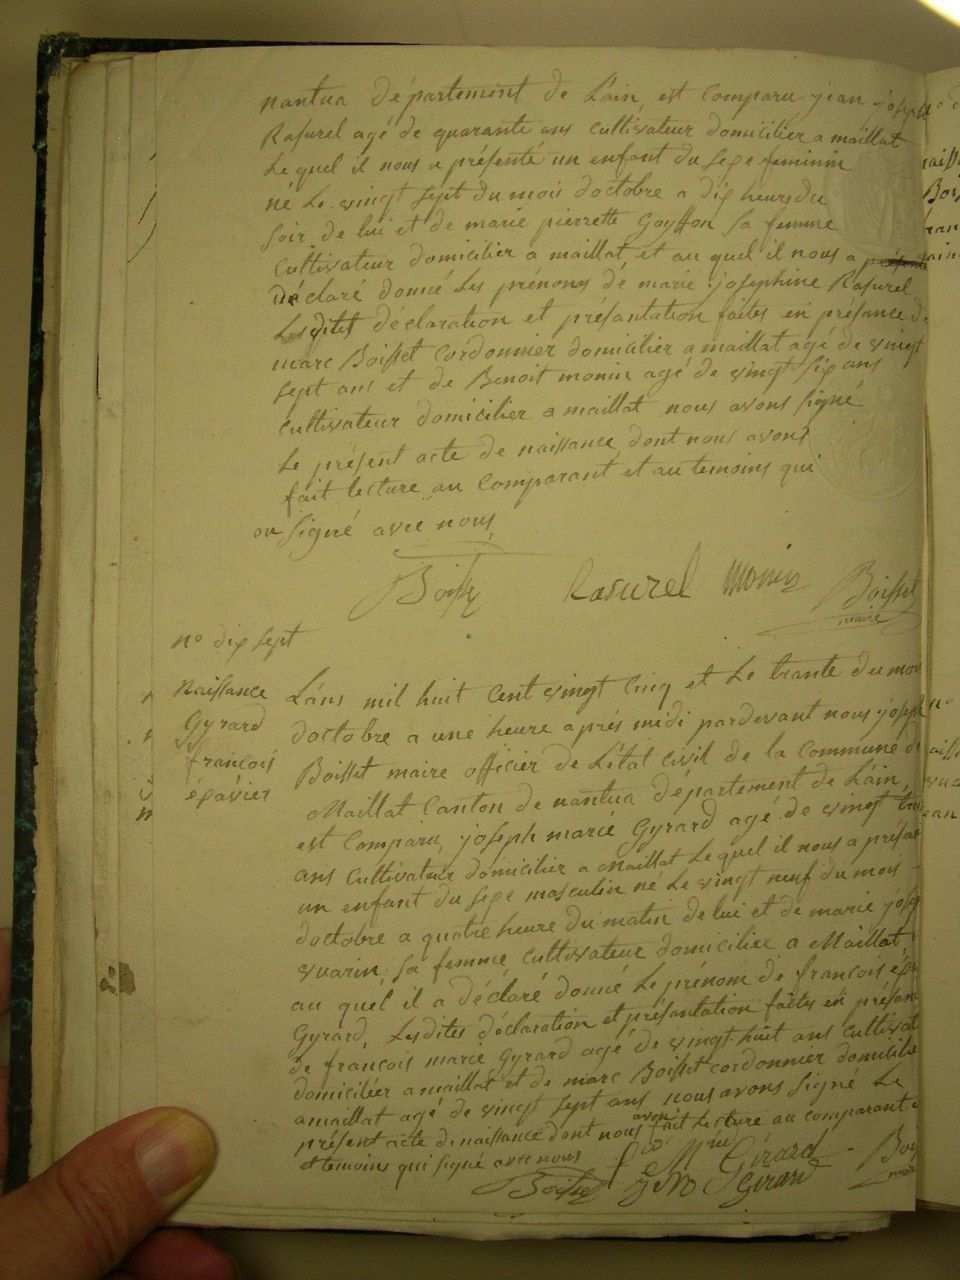 nantua département de Láin, est Comparu jean joseph
Rasurel agé de quarante ans cultivateur domicilier a maillat
Le quel il nous a présenté un enfant du sexe feminin
né Le vingt sept du mois doctobre a dix heures du
soir de lui et de marie pierrette Goyffon sa femme
Cultivateur domicilier a maillat, et au quel il nous a
déclaré donné Les prénoms dé marie josephine Rasurel
Les dites déclaration et présantation faites en présance de
marc Boisset Cordonnier domicilier a maillat agé de vingt
sept ans et de Benoit monin agé de vingt six ans
Cultivateur domicilier a maillat nous avons signé
Le présent acte de naissance dont nous avons
fait lecture au Comparant et au temoins qui
on signé avec nous
Boisset Rasurel Monin Boisset
maire
n° dix sept
Naissance
Gyrard
françois
Láns mil huit Cent vingt Cinq et Le trante du mois
doctobre a une heure aprés midi pardevant nous joseph
Boisset maire officier de Létat Civil de la Commune de
Maillat Canton de nantua département de Láin,
est Comparu, joseph marie Gyrard agé de vingt
ans Cultivateur domicilier a Maillat Le quel il nous a présan
un enfant du sexe masculin né Le vingt neuf du mois
doctobre a quatre heure du matin de lui et de marie josep
vuarin, sa femme Cultivateur domiciliée a Maillat,
au quél il a déclaré donné Le prénom de françois
Gyrard, Lesdites déclaration et présantation faites en présanc
de françois marie Gyrard agé de vingt huit ans Cultivat
domiciliér a maillat et de marc Boisset cordonnier domicilier
a maillat agé de vingt sept ans nous avons signé Le
présent acte de naissance dont nous avons fait Lecture au comparant
et temoins qui signé avec nous
Boisset Girard Girard Bois